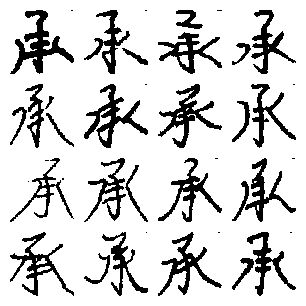 承承承承
承承承承
承承承承
承承承承